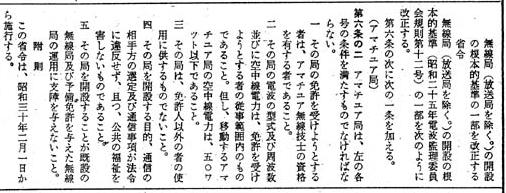 無線局（放送局を除く。）の開設
の根本的基準の一部を改正する
省令
無線局（放送局を除く。）の開設の根
本的基準（昭和二十五年電波監理委員
会規則第十二号）の一部を次のように
改正する。
第六条の次に次の一条を加える。
（アマチュア局）
第六条の二　アマチュア局は、左の各
号の条件を満たすものでなければな
らない。
一　その局の免許を受けようとする
者は、アマチュア無線技士の資格
を有する者であること。
二　その局の電波の型式及び周波数
並びに空中線電力は、免許を受け
ようとする者の従事範囲内のもの
であること。但し、移動するアマ
チュア局の空中線電力は、五〇ワ
ット以下であること。
三　その局は、免許人以外の者の使
用に供するものでないこと。
四　その局を開設する目的、通信の
相手方の選定及び通信事項が法令
に違反せず、且つ、公共の福祉を
害しないものであること。
五　その局を開設することが既設の
無線局及び予備免許を与えた無線
局の運用に支障を与えないこと。
附　則
この省令は、昭和三十年一月一日か
ら施行する。